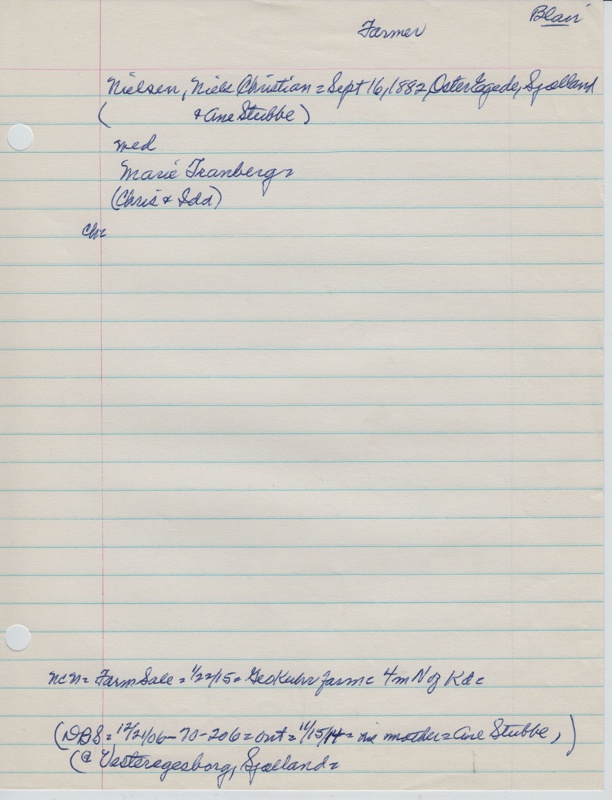 Blair
Farmer
Nielsen, Niels Christian = Sept 16, 1882, Oster Egede, Sjælland
( + Ane Stubbe )
med
Marie Tranberg =
(Chris + Idd)
ch =
NCN = Farm Sale = 1/22/15 = Geo Kuhr farm = 4 m N of Ka =
(DBS = 12/21/06 - 70 - 206 = out = 11/15/14 = mother = Ane Stubbe, )
(@ Vesteregesborg, Sjælland =